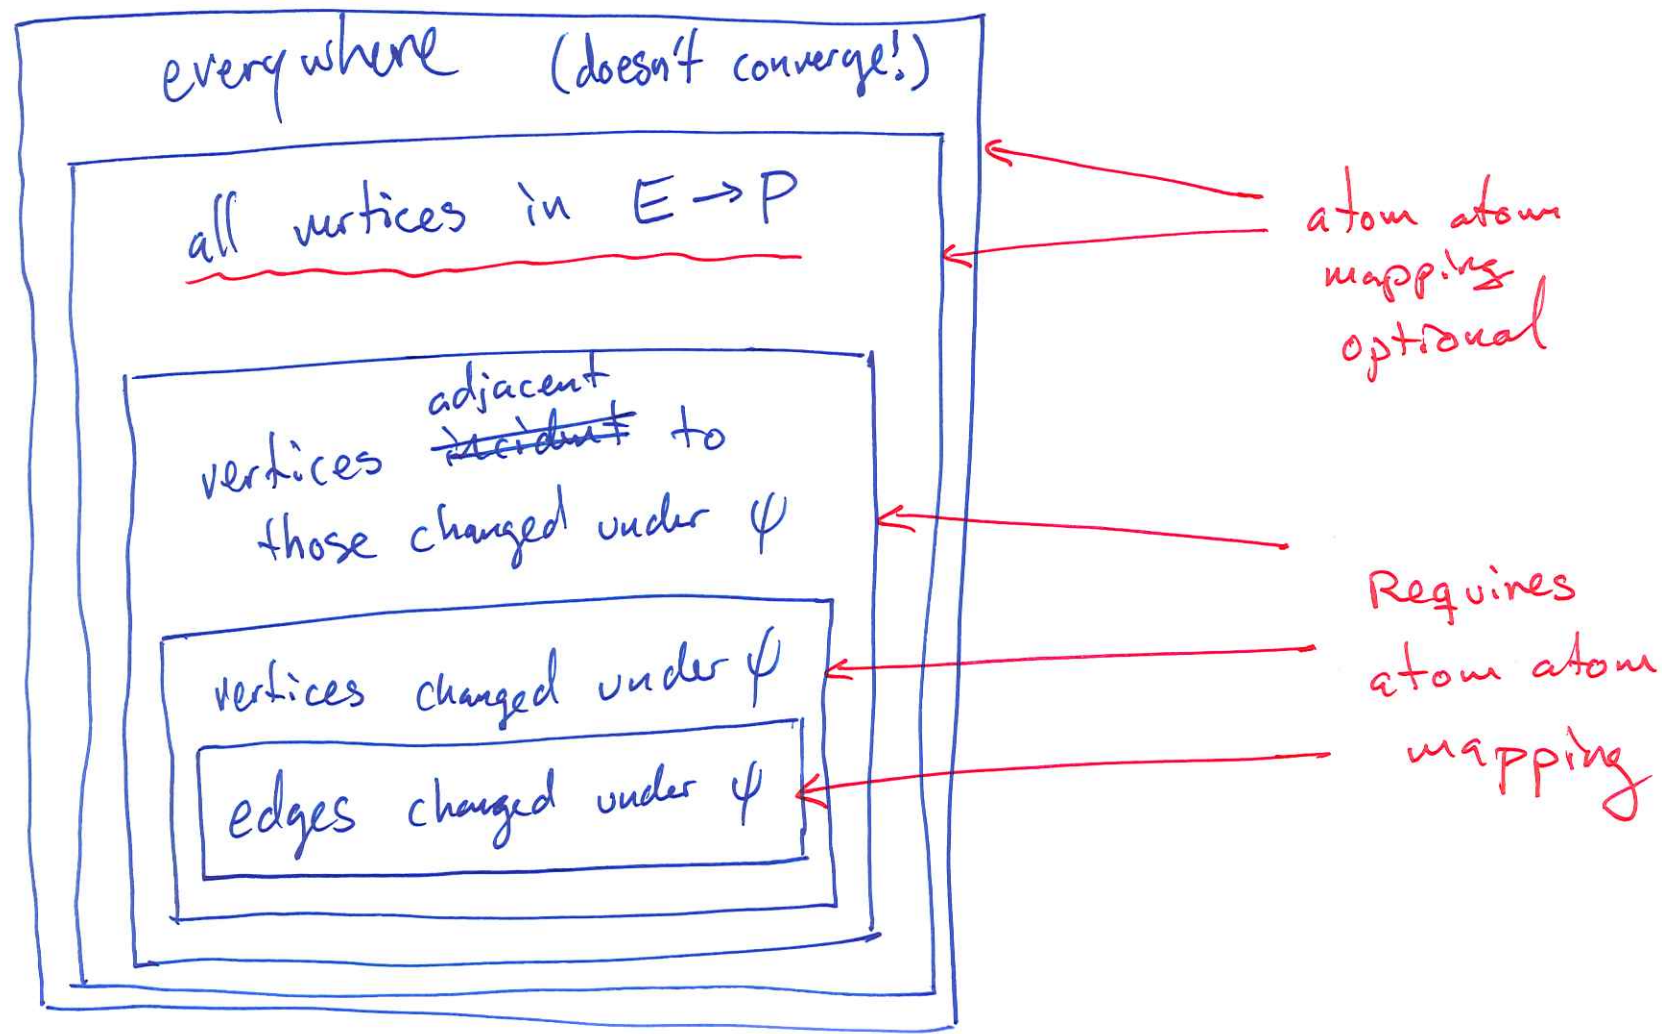 everywhere (doesn't converge!)
all vertices in E → P
adjacent
vertices incident to
those changed under ψ
vertices changed under ψ
edges changed under ψ
atom atom
mapping
optional
Requires
atom atom
mapping